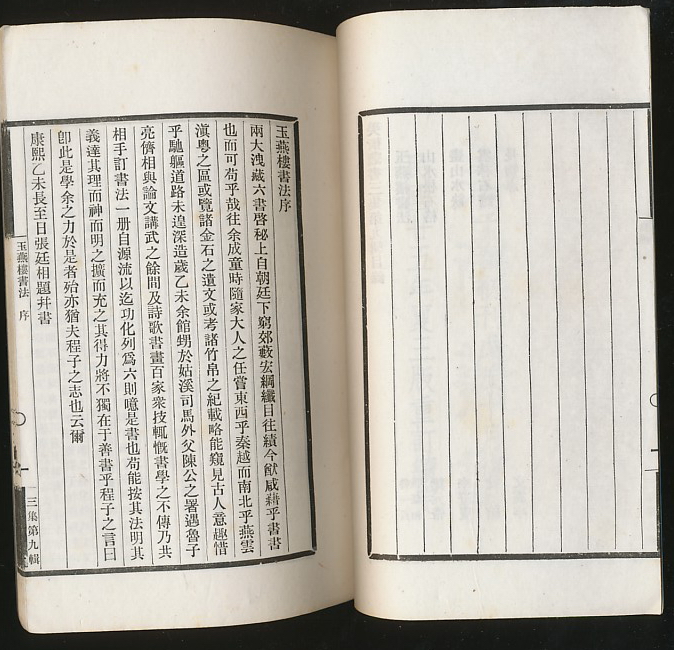 玉燕樓書法序
兩大洩藏六書啓秘上自朝廷下窮郊藪宏綱纖目往績今猷咸藉乎書書
也而可苟乎哉往余成童時隨家大人之任嘗東西乎秦越而南北乎燕雲
滇粤之區或覽諸金石之遺文或考諸竹帛之紀載略能窺見古人意趣惜
乎馳軀道路未遑深造歲乙未余館甥於姑溪司馬外父陳公之署遇魯子
亮儕相與論文講武之餘間及詩歌書畫百家衆技輒慨書學之不傳乃共
相手訂書法一册自源流以迄功化列爲六則噫是書也苟能按其法明其
義達其理而神而明之擴而充之其得力將不獨在于善書乎程子之言曰
卽此是學余之力於是者殆亦猶夫程子之志也云爾
康熙乙未長至日張廷相題幷書
玉燕樓書法 序
一
三集第九輯